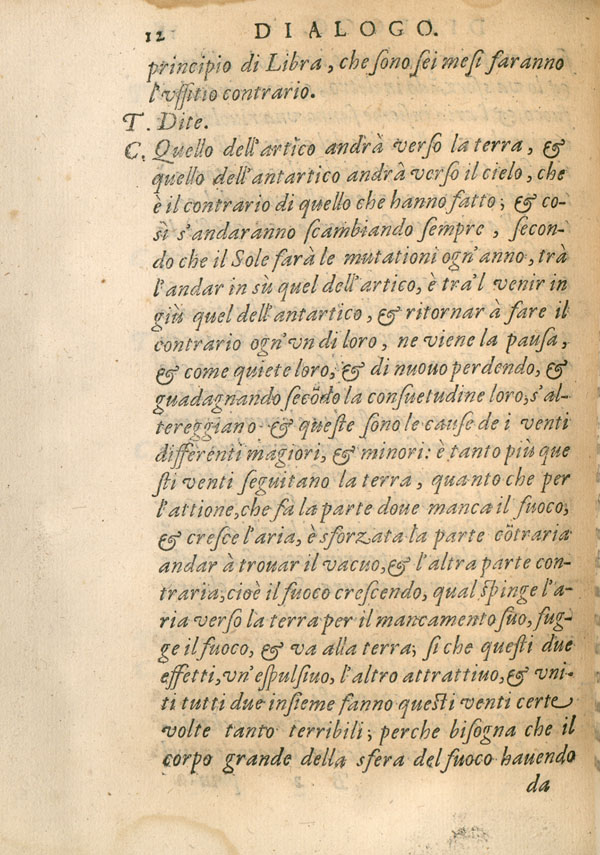 12 DIALOGO.
principio di Libra, che ſono ſei meſi faranno
l'vffitio contrario.
T. Dite.
C. Quello dell'artico andrà verſo la terra, &
quello dell'antartico andrà verſo il cielo, che
è il contrario di quello che hanno fatto; & co-
sì s'andaranno ſcambiando ſempre, ſecon-
do che il Sole farà le mutationi ogn'anno, trà
l'andar in sù quel dell'artico, è tra'l venir in
giù quel dell'antartico, & ritornar à fare il
contrario ogn'vn di loro, ne viene la pauſa,
& come quiete loro, & di nuouo perdendo, &
guadagnando ſecōdo la conſuetudine loro, s'al-
tereggiano & queſte ſono le cauſe de i venti
differenti magiori, & minori: è tanto più que
ſti venti ſeguitano la terra, quanto che per
l'attione, che fa la parte doue manca il fuoco,
& creſce l'aria, è sforzata la parte cōtraria
andar à trouar il vacuo, & l'altra parte con-
traria, cioè il fuoco creſcendo, qual ſpinge l'a-
ria verſo la terra per il mancamento ſuo, fug-
ge il fuoco, & va alla terra; ſi che queſti due
effetti, vn'eſpulſiuo, l'altro attrattiuo, & vni-
ti tutti due inſieme fanno queſti venti certe
volte tanto terribili; perche biſogna che il
corpo grande della sfera del fuoco hauendo
da